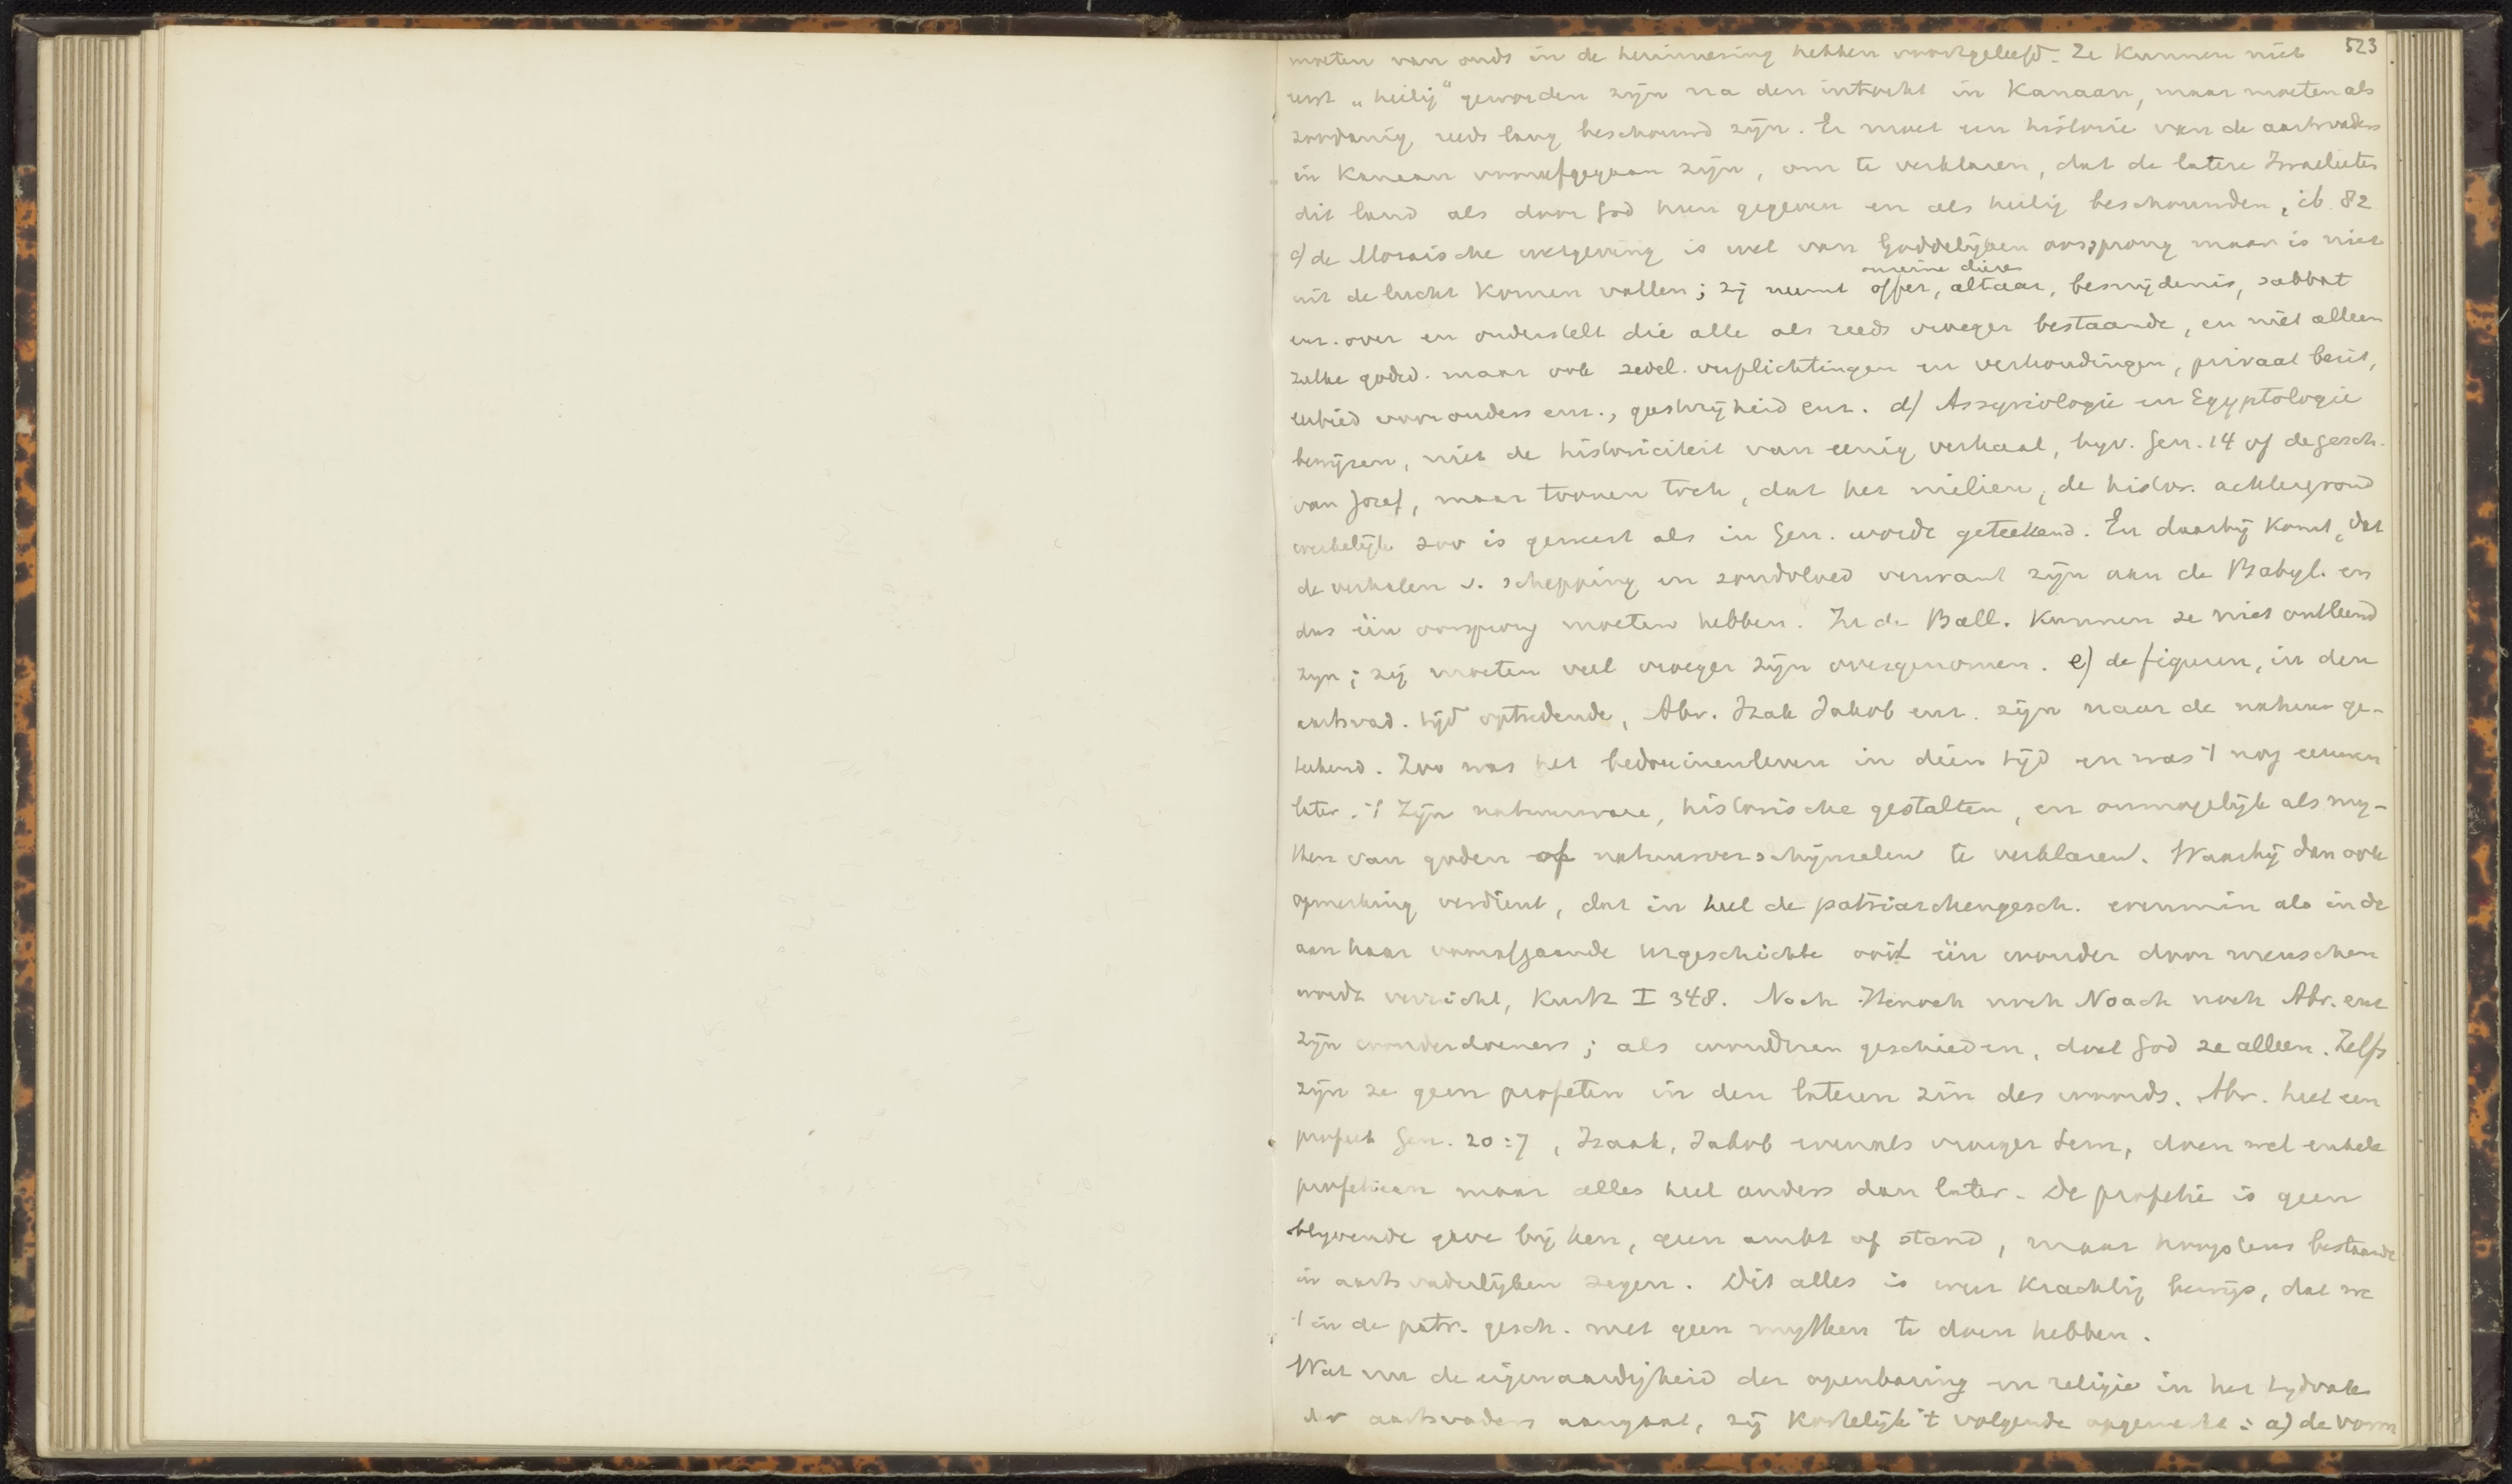 523
moeten van ouds in de herinnering hebben voortgeleefd. Ze kunnen niet
eerst „heilig" geworden zijn na den intocht in Kanaan, maar moeten als
zoodanig reeds lang beschouwd zijn. Er moet een historie van de aartsvaders
in Kanaan voorafgegaan zijn, om te verklaren, dat de latere Israelieten
dit land als door God hun gegeven en als heilig beschouwden, ib. 82
c) de Mozaische wetgeving is wel van Goddelijken oorsprong maar is niet
onreine dieren
uit de lucht komen vallen; zij neemt offer, altaar, besnijdenis, sabbat
enz. over en onderstelt die alle als reeds vroeger bestaande, en niet alleen
zulke godsd. maar ook zedel. verplichtingen en verhoudingen, privaat bezit,
eerbied voor ouders enz., gastvrijheid enz. d) Assyriologie en Egyptologie
bewijzen, niet de historiciteit van eenig verhaal, bijv. Gen. 14 of de gesch.
van Jozef, maar toonen toch, dat het milieu, de histor. achtergrond
werkelijk zoo is geweest als in Gen. wordt geteekend. En daarbij komt, dat
de verhalen v. schepping en zondvloed verwant zijn aan de Babyl. en
dus één oorsprong moeten hebben. In de Ball. kunnen ze niet ontleend
zijn; zij moeten veel vroeger zijn overgenomen. e) de figuren, in den
aartsvad. tijd optredende, Abr. Izak Jakob enz. zijn naar de natuur ge-
teekend. Zoo was het bedouinenleven in dien tijd en was 't nog eeuwen
later. 't Zijn natuurware, historische gestalten, en onmogelijk als my-
then van goden of natuurverschijnselen te verklaren. Waarbij dan ook
opmerking verdient, dat in heel de patriarchengesch. evenmin als in de
aan haar voorafgaande Urgeschichte ooit één wonder door menschen
wordt verricht, Kurtz I 348. Noch Henoch noch Noach noch Abr. enz
zijn wonderdoeners; als wonderen geschieden, doet God ze alleen. Zelfs
zijn ze geen profeten in den lateren zin des woords. Abr. heet een
profeet Gen. 20:7, Izaak, Jakob evenals vroeger Sem, doen wel enkele
profetieen maar alles heel anders dan later. De profetie is geen
blijvende gave bij hen, geen ambt of stand, maar hoogstens bestaande
in aartsvaderlijken zegen. Dit alles is weer krachtig bewijs, dat we
't in de patr. gesch. met geen mythen te doen hebben.
Wat nu de eigenaardigheid der openbaring en religie in het tijdvak
der aartsvaders aangaat, zij kortelijk 't volgende opgemerkt: a) de vorm